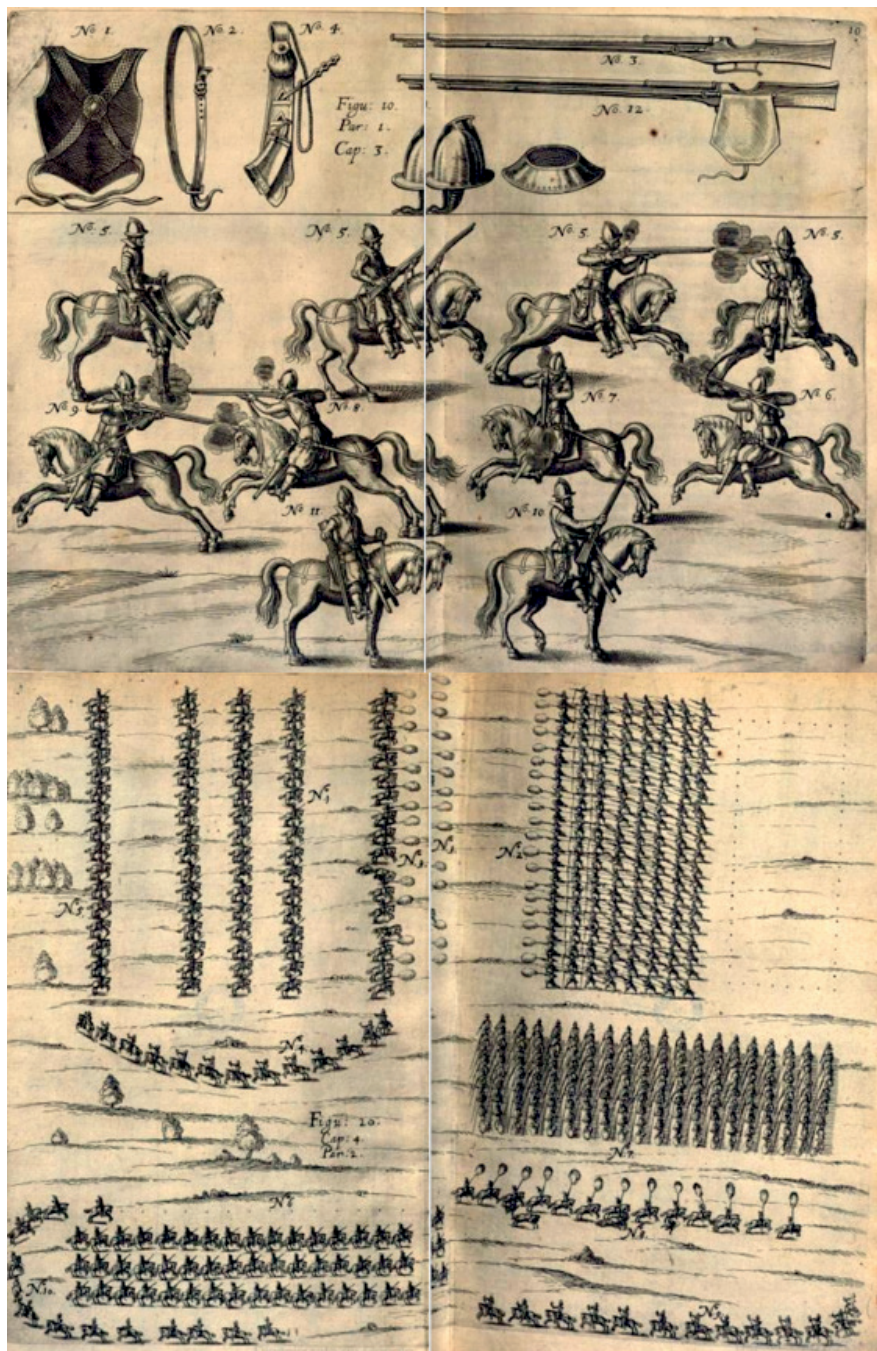 No. 1.
No. 2.
No. 4.
Figu: 10.
Par: 1.
Cap: 3.
No. 3.
10
No. 12.
No. 5.
No. 5.
No. 5.
No. 5.
No. 9
No. 8.
No. 7.
No. 6.
No. 11
No. 10.
No. 5
No. 4
Figu: 20.
Cap: 4.
Par: 2.
No. 7.
No. 8.